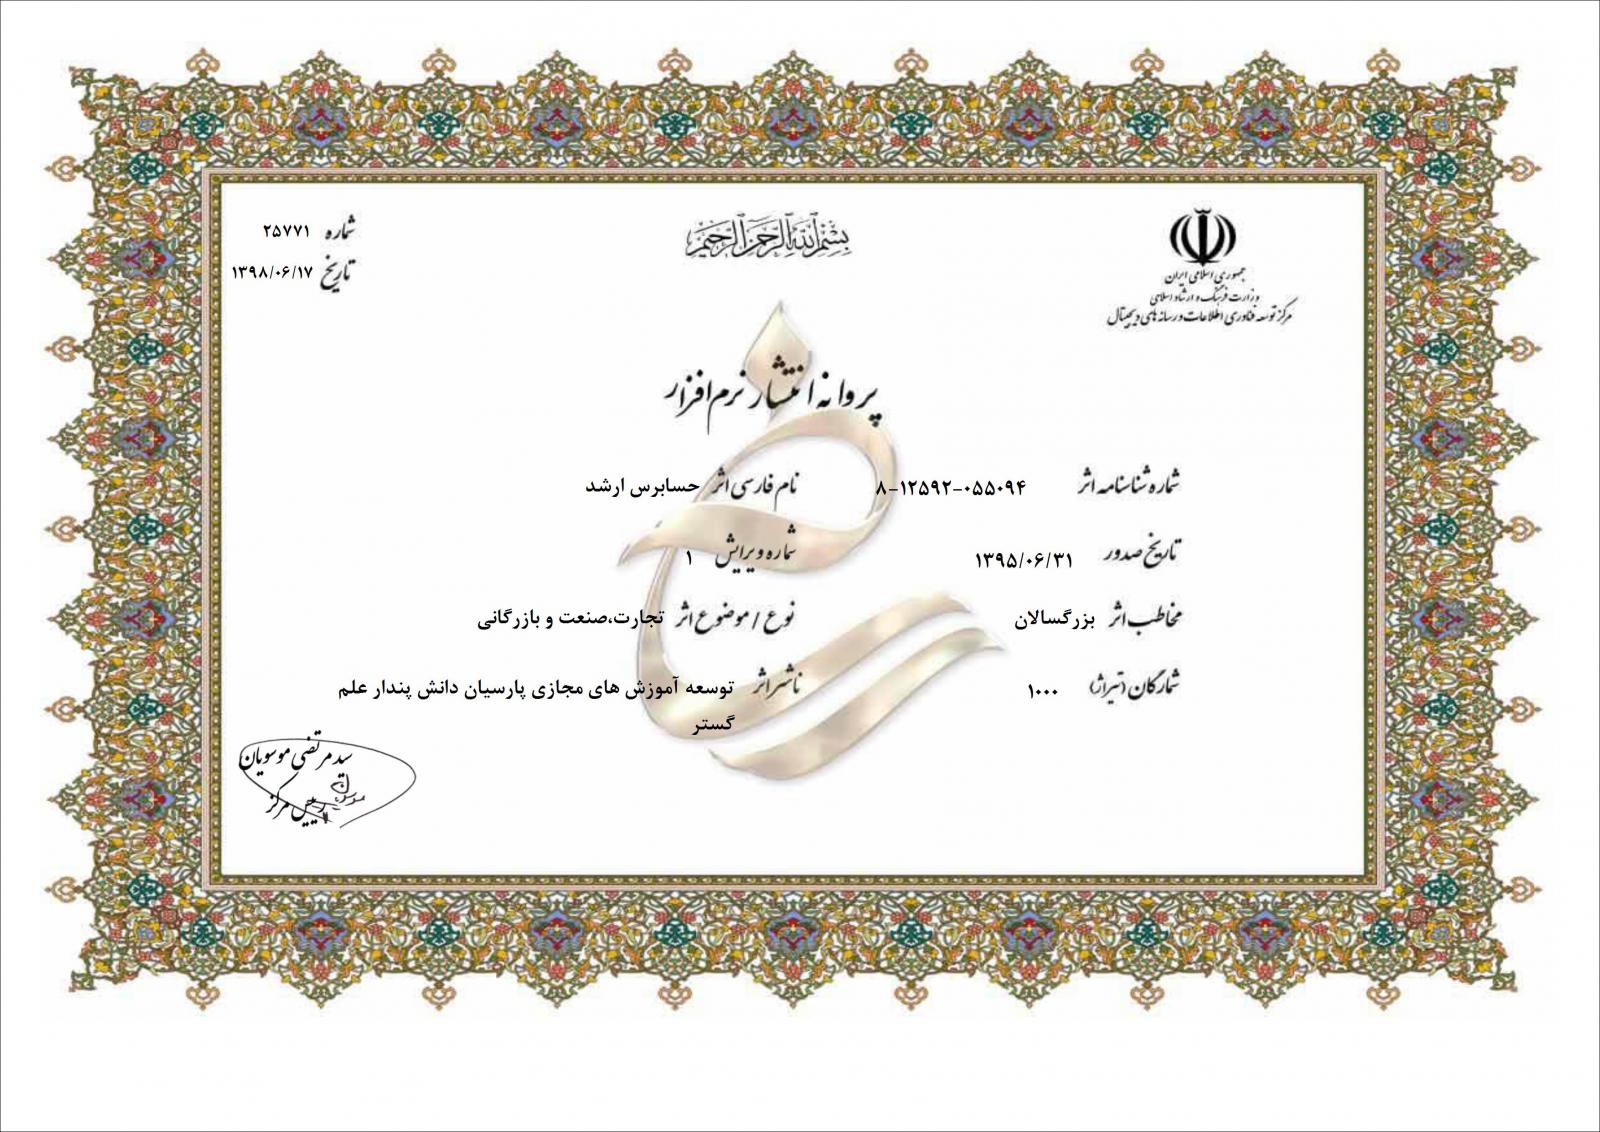 بسم الله الرحمن الرحیم
جمهوری اسلامی ایران
وزارت فرهنگ و ارشاد اسلامی
مرکز توسعه فناوری اطلاعات و رسانه های دیجیتال
شماره ۲۵۷۷۱
تاریخ ۱۳۹۸/۰۶/۱۷
پروانه انتشار نرم افزار
شماره شناسنامه اثر ۸-۱۲۵۹۲-۰۵۵۰۹۴ نام فارسی اثر حسابرس ارشد
تاریخ صدور ۱۳۹۵/۰۶/۳۱ شماره ویرایش ۱
مخاطب اثر بزرگسالان نوع / موضوع اثر تجارت،صنعت و بازرگانی
شمارگان (تیراژ) ۱۰۰۰ ناشر اثر توسعه آموزش های مجازی پارسیان دانش پندار علم
گستر
سید مرتضی موسویان
رییس مرکز